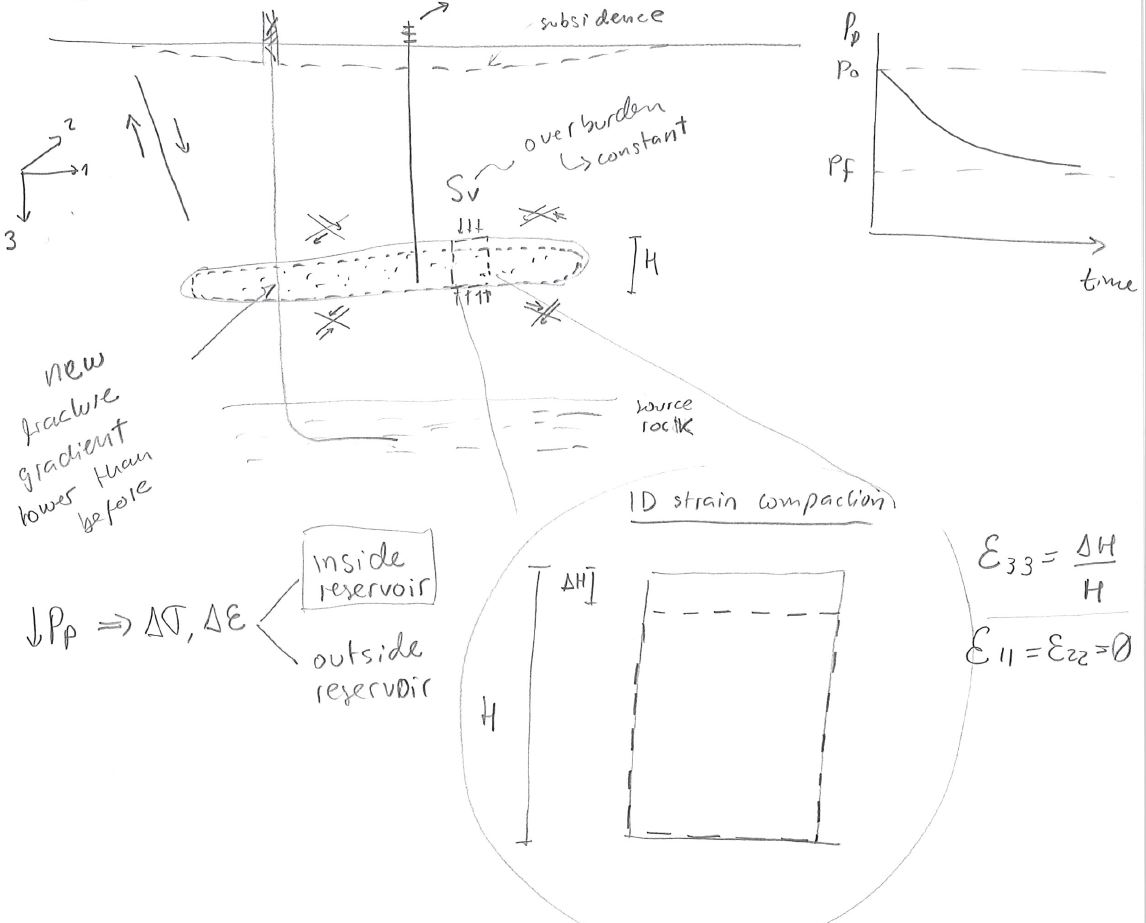 subsidence
Pp
Po
Pf
time
overburden
↳ constant
Sv
1
2
3
H
new
fracture
gradient
lower than
before
source
rock
1D strain compaction
ΔH
H
ε33 = ΔH/H
ε11 = ε22 = 0
↓Pp ⇒ Δσ, Δε
inside
reservoir
outside
reservoir